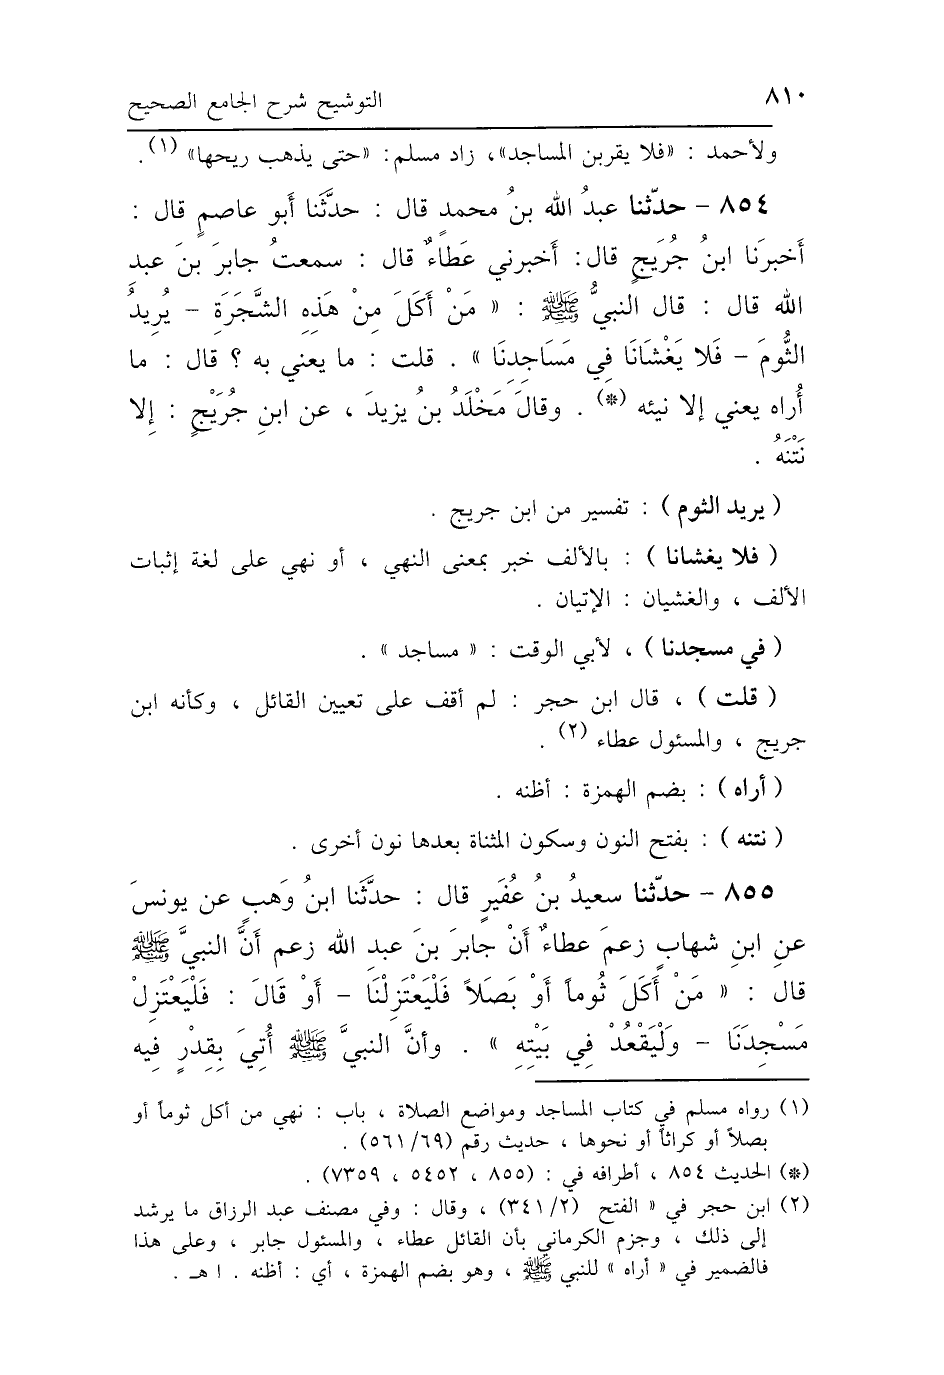 ٨١٠ التوشيح شرح الجامع الصحيح
ولأحمد : «فلا يقربن المساجد»، زاد مسلم: «حتى يذهب ريحها» (١).
٨٥٤ – حدّثنا عبدُ الله بنُ محمدٍ قال : حدَّثَنا أبو عاصمٍ قال :
أَخبرَنا ابنُ جُرَيجٍ قال: أخبرني عَطاءٌ قال : سمعتُ جابرَ بنَ عبدِ
الله قال : قال النبيُّ ﷺ : « مَنْ أَكَلَ مِنْ هَذِهِ الشَّجَرَةِ – يُرِيدُ
الثُّومَ – فَلا يَغْشَانَا فِي مَسَاجِدِنَا » . قلت : ما يعني به ؟ قال : ما
أُراه يعني إلا نيئه (*) . وقالَ مَخْلَدُ بنُ يزيدَ ، عن ابنِ جُرَيْجٍ : إِلا
نَتْنَهُ .
( يريد الثوم ) : تفسير من ابن جريج .
( فلا يغشانا ) : بالألف خبر بمعنى النهي ، أو نهي على لغة إثبات
الألف ، والغشيان : الإتيان .
( في مسجدنا ) ، لأبي الوقت : « مساجد » .
( قلت ) ، قال ابن حجر : لم أقف على تعيين القائل ، وكأنه ابن
جريج ، والمسئول عطاء (٢) .
( أراه ) : بضم الهمزة : أظنه .
( نتنه ) : بفتح النون وسكون المثناة بعدها نون أخرى .
٨٥٥ – حدّثنا سعيدُ بنُ عُفَيرٍ قال : حدَّثَنا ابنُ وَهبٍ عن يونسَ
عنِ ابنِ شهابٍ زعمَ عطاءٌ أنْ جابرَ بنَ عبدِ الله زعم أنَّ النبيَّ ﷺ
قال : « مَنْ أَكَلَ ثُوماً أوْ بَصَلاً فَلْيَعْتَزِلْنَا – أوْ قَالَ : فَلْيَعْتَزِلْ
مَسْجِدَنَا – وَلْيَقْعُدْ فِي بَيْتِهِ » . وأنَّ النبيَّ ﷺ أُتِيَ بِقِدْرٍ فِيهِ
(١) رواه مسلم في كتاب المساجد ومواضع الصلاة ، باب : نهي من أكل ثوماً أو
بصلاً أو كراثاً أو نحوها ، حديث رقم (٥٦١/٦٩) .
(*) الحديث ٨٥٤ ، أطرافه في : (٨٥٥ ، ٥٤٥٢ ، ٧٣٥٩) .
(٢) ابن حجر في « الفتح (٣٤١/٢) ، وقال : وفي مصنف عبد الرزاق ما يرشد
إلى ذلك ، وجزم الكرماني بأن القائل عطاء ، والمسئول جابر ، وعلى هذا
فالضمير في « أراه » للنبي ﷺ ، وهو بضم الهمزة ، أي : أظنه . ا هـ .